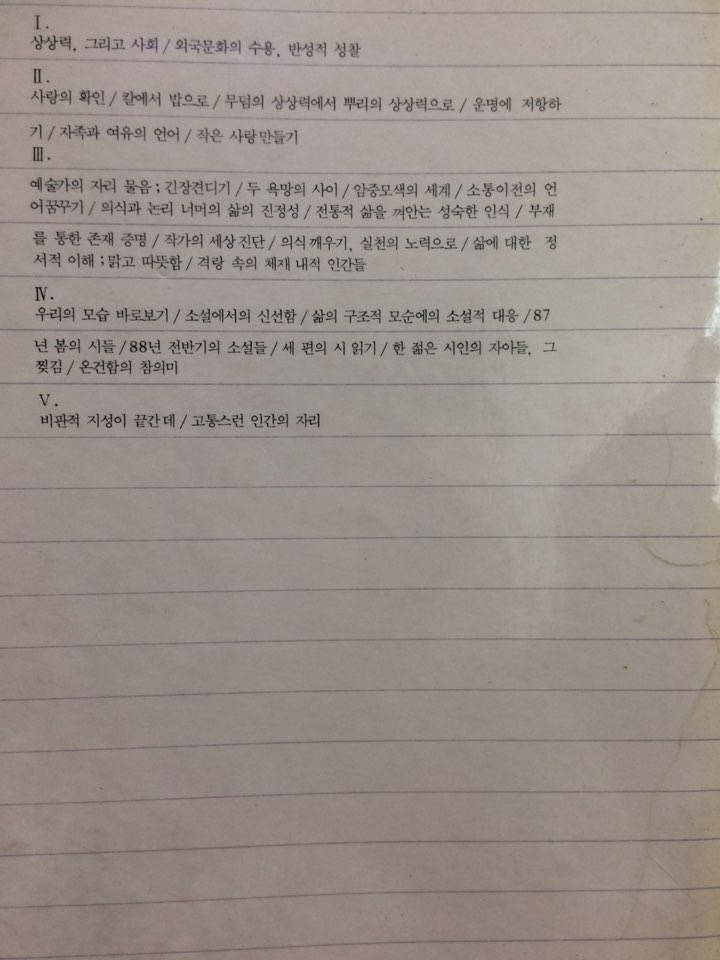 Ⅰ.
상상력, 그리고 사회 / 외국문화의 수용, 반성적 성찰
Ⅱ.
사랑의 확인 / 칼에서 밥으로 / 무덤의 상상력에서 뿌리의 상상력으로 / 운명에 저항하
기 / 자족과 여유의 언어 / 작은 사랑만들기
Ⅲ.
예술가의 자리 물음 ; 긴장견디기 / 두 욕망의 사이 / 암중모색의 세계 / 소통이전의 언
어꿈꾸기 / 의식과 논리 너머의 삶의 진정성 / 전통적 삶을 껴안는 성숙한 인식 / 부재
를 통한 존재 증명 / 작가의 세상진단 / 의식깨우기, 실천의 노력으로 / 삶에 대한 정
서적 이해 ; 맑고 따뜻함 / 격랑 속의 체재 내적 인간들
Ⅳ.
우리의 모습 바로보기 / 소설에서의 신선함 / 삶의 구조적 모순에의 소설적 대응 / 87
년 봄의 시들 / 88년 전반기의 소설들 / 세 편의 시 읽기 / 한 젊은 시인의 자아들, 그
찢김 / 온건함의 참의미
Ⅴ.
비판적 지성이 끝간 데 / 고통스런 인간의 자리